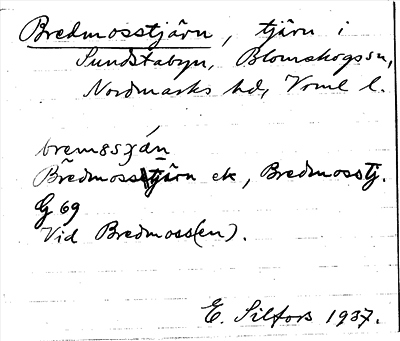 Bredmosstjärn, tjärn i
Sundstabyn, Blomskogs sn,
Nordmarks hd, Vrml l.
Bredmosstjärn ek, Bredmosstj.
G 69
Vid Bredmoss(en).
E. Silfors 1937.